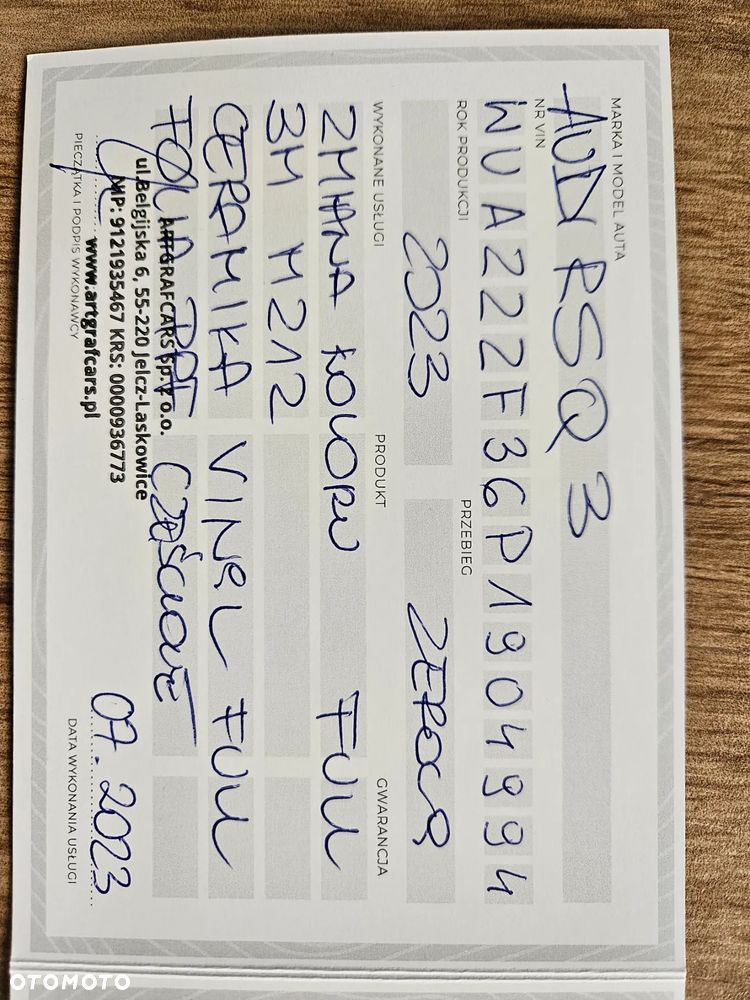 MARKA I MODEL AUTA
AUDI RSQ 3
NR VIN
WUAZZZF36P1904994
ROK PRODUKCJI PRZEBIEG
2023 ZEROWY
WYKONANE USŁUGI PRODUKT GWARANCJA
ZMIANA KOLORU FULL
3M M212
CERAMIKA VINYL FULL
FOLIA PPF CZĘŚCIOWE
ARTGRAFCARS Sp. z o.o.
ul.Belgijska 6, 55-220 Jelcz-Laskowice
NIP: 9121935467 KRS: 0000936773
www.artgrafcars.pl
07.2023
PIECZĄTKA I PODPIS WYKONAWCY DATA WYKONANIA USŁUGI
OTOMOTO